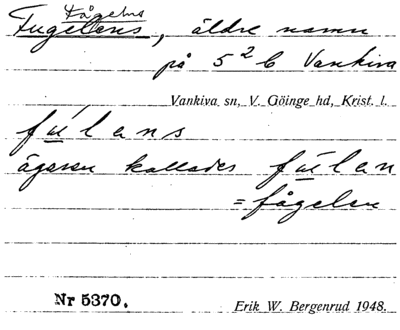 Fågelns
Fugelens, äldre namn
på 5² b Vankiva
Vankiva sn, V. Göinge hd, Krist. l.
fúlens
ägaren kallades fúlen
= fågelen
Nr 5370. Erik W. Bergenrud 1948.